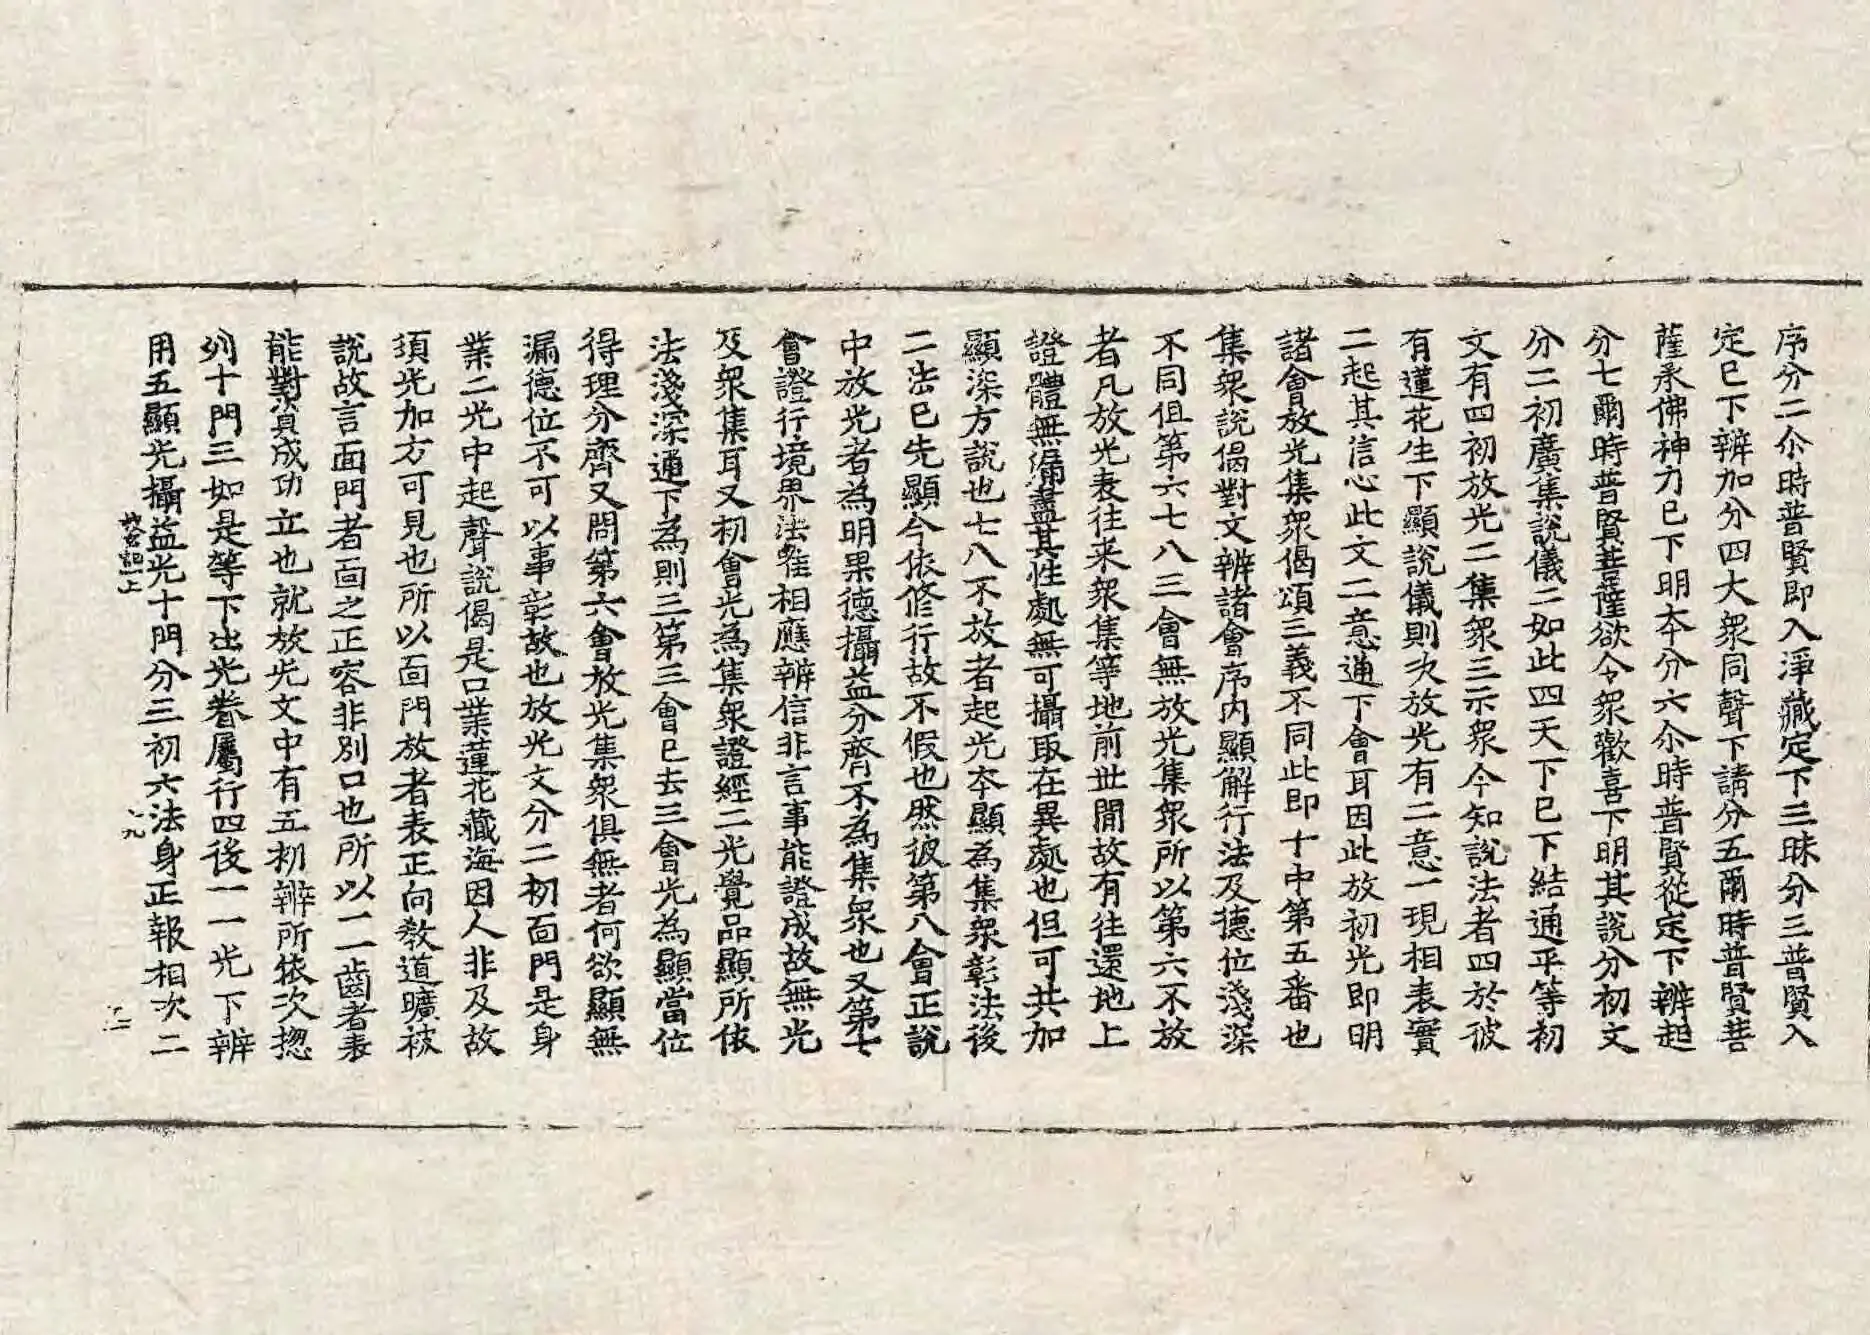 序分二尒時普賢即入淨藏定下三昧分三普賢入
定巳下辨加分四大衆同聲下請分五爾時普賢菩
薩承佛神力巳下明本分六尒時普賢從定下辨起
分七爾時普賢菩薩欲令衆歡喜下明其說分初文
分二初廣集說儀二如此四天下巳下結通平等初
文有四初放光二集衆三示衆令知說法者四於彼
有蓮花生下顯說儀則次放光有二意一現相表實
二起其信心此文二意通下會耳因此放初光即明
諸會放光集衆偈頌三義不同此即十中第五番也
集衆說偈對文辨諸會序內顯解行法及德位淺深
不同但第六七八三會無放光集衆所以第六不放
者凡放光表往来衆集等地前世間故有往還地上
證體無偏盡其性處無可攝取在異處也但可共加
顯深方說也七八不放者起光本顯為集衆彰法後
二法巳先顯今依修行故不假也然彼第八會正說
中放光者為明果德攝益分齊不為集衆也又第七
會證行境界法雖相應辨信非言事能證成故無光
及衆集耳又初會光為集衆證經二光覺品顯所依
法淺深通下為則三第三會巳去三會光為顯當位
得理分齊又問第六會放光集衆俱無者何欲顯無
漏德位不可以事彰故也放光文分二初面門是身
業二光中起聲說偈是口業蓮花藏海因人非及故
須光加方可見也所以面門放者表正向教道曠被
說故言面門者面之正容非別口也所以一一齒者表
能對資成功立也就放光文中有五初辨所依次揔
列十門三如是等下出光眷屬行四後一一光下辨
用五顯光攝益光十門分三初六法身正報相次二